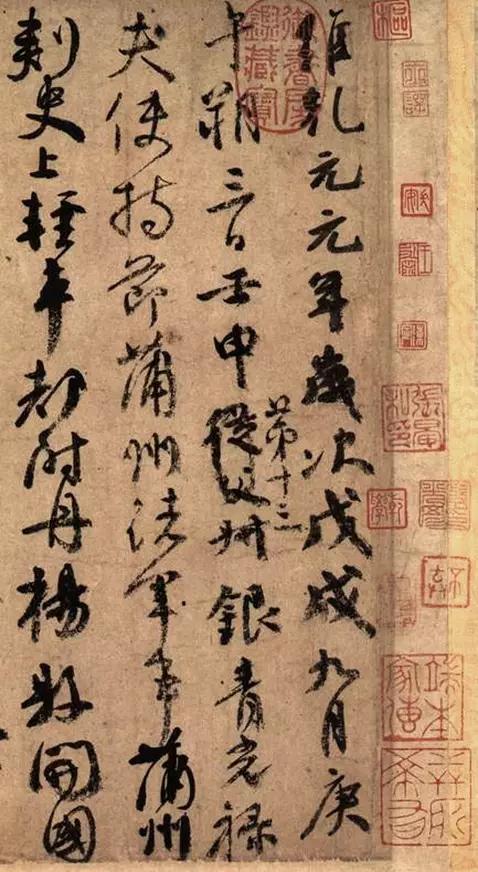 維乾元元年歲次戊戌九月庚
午朔三日壬申從父第十三叔銀青光祿
夫使持節蒲州諸軍事蒲州
刺史上輕車都尉丹楊縣開國
御書房鑑藏寶
張晏私印